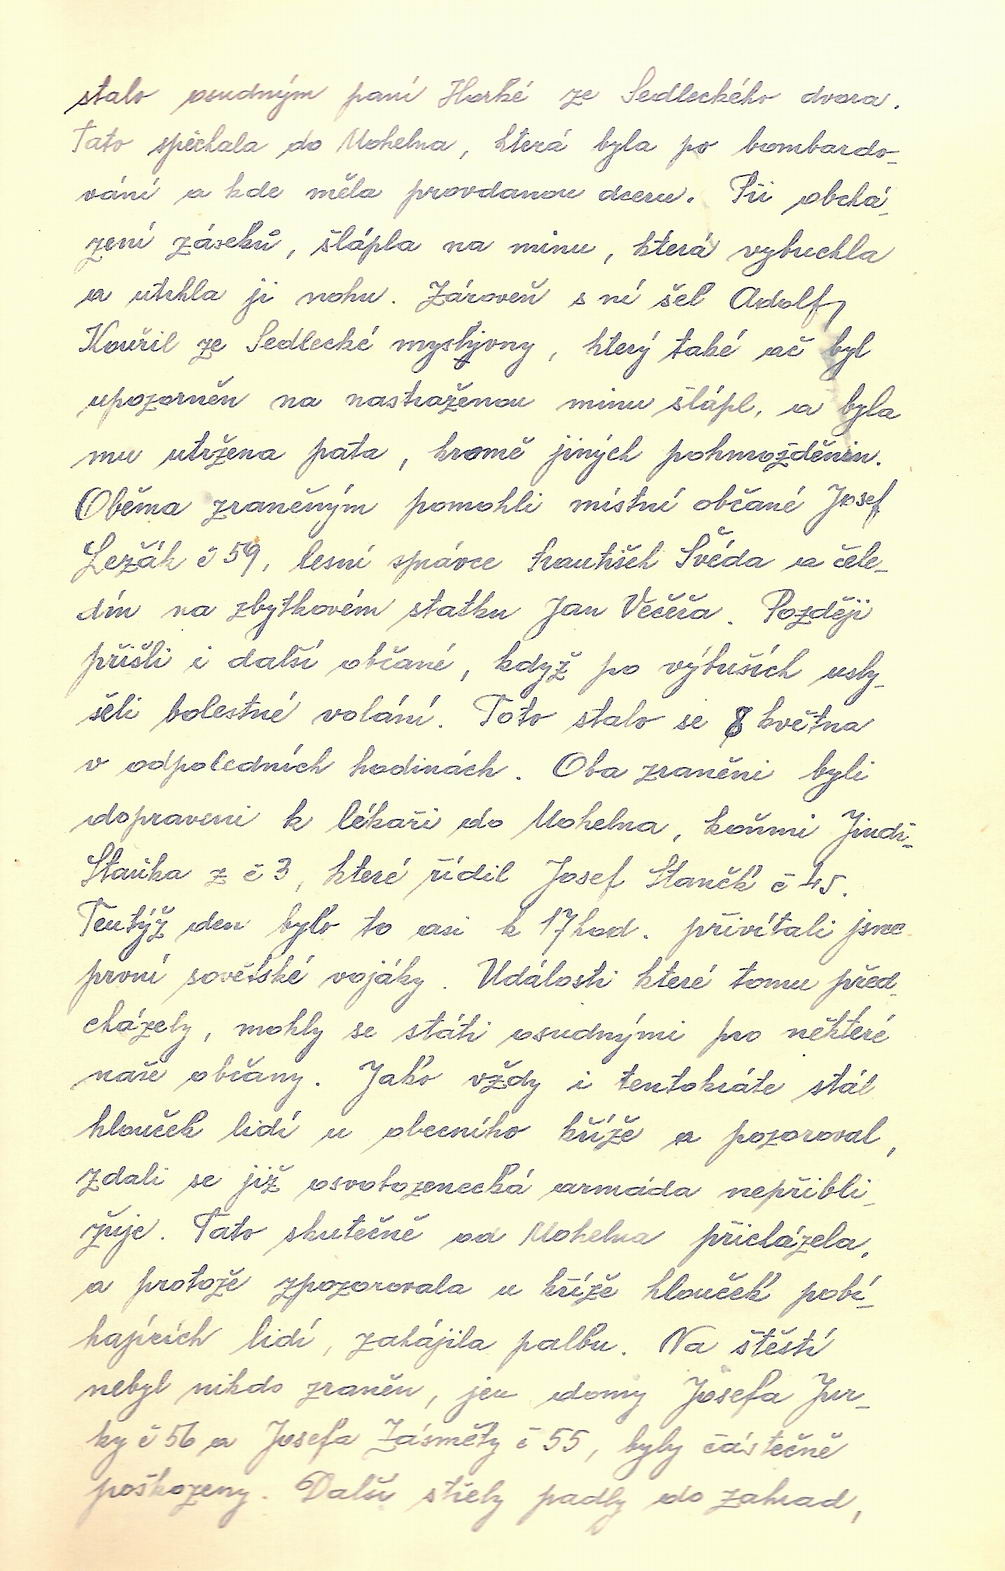 stalo osudným paní Horké ze Sedleckého dvora.
Tato spěchala do Mohelna, která byla po bombardo-
vání a kde měla provdanou dceru. Při obchá-
zení záseků, šlápla na minu, která vybuchla
a utrhla ji nohu. Zároveň s ní šel Adolf
Kouřil ze Sedlecké myslivny, který také ač byl
upozorněn na nastraženou minu šlápl, a byla
mu utržena pata, kromě jiných pohmožděnin.
Oběma zraněným pomohli místní občané Josef
Ležák č 59, lesní správce František Švéda a čele-
dín na zbytkovém statku Jan Večeřa. Později
přišli i další občané, když po výbuších usly-
šeli bolestné volání. Toto stalo se 8 května
v odpoledních hodinách. Oba zraněni byli
dopraveni k lékaři do Mohelna, koňmi Jindř-
Staňka z č 3, které řídil Josef Staněk č 45.
Tentýž den bylo to asi k 17 hod. přivítali jsme
první sovětské vojáky. Události které tomu před-
cházely, mohly se státi osudnými pro některé
naše občany. Jako vždy i tentokráte stál
hlouček lidí u obecního kříže a pozoroval,
zdali se již osvobozenecká armáda nepřibli-
žuje. Tato skutečně od Mohelna přicházela,
a protože zpozorovala u kříže hlouček pobí-
hajících lidí, zahájila palbu. Na štěstí
nebyl nikdo zraněn, jen domy Josefa Jur-
ky č 56 a Josefa Zásměty č 55, byly částečně
poškozeny. Další střely padly do zahrad,